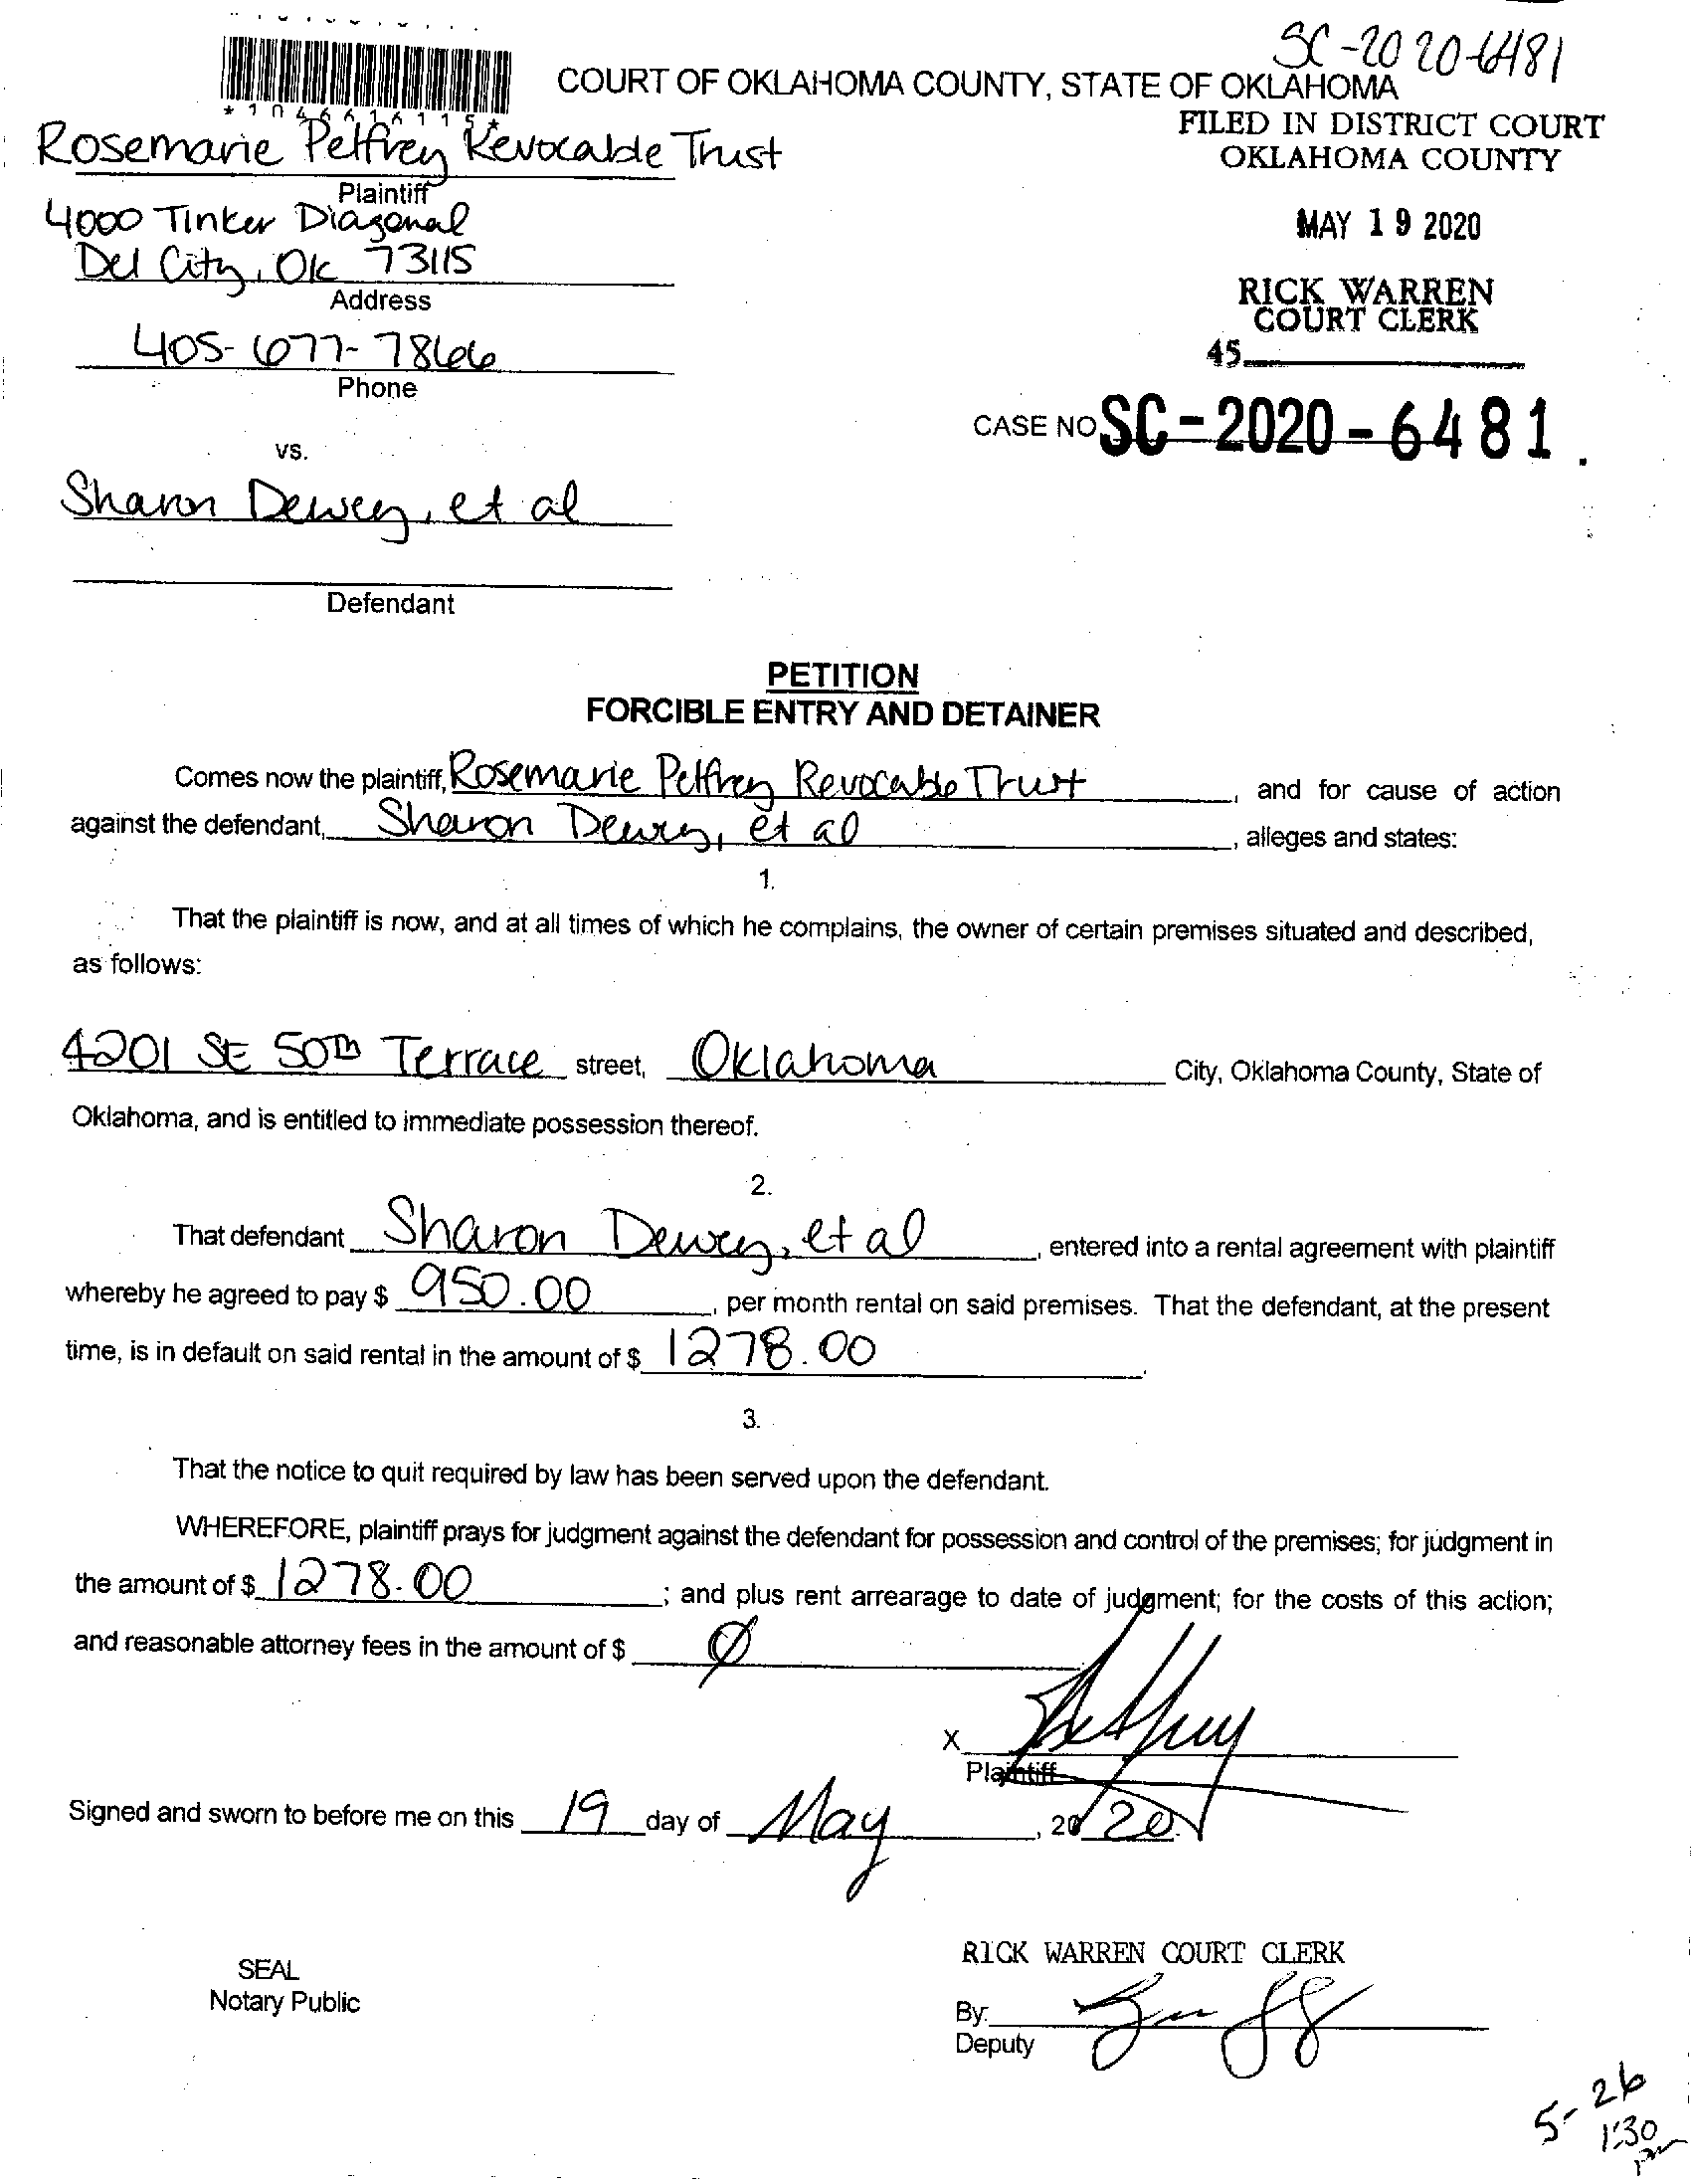 SC-2020-6481
COURT OF OKLAHOMA COUNTY, STATE OF OKLAHOMA
FILED IN DISTRICT COURT
OKLAHOMA COUNTY
Rosemarie Pelfrey Revocable Trust
Plaintiff
4000 Tinker Diagonal
Del City, Ok 73115
Address
MAY 19 2020
RICK WARREN
COURT CLERK
45
405-677-7866
Phone
CASE NO SC-2020-6481.
vs.
Sharon Dewey, et al
Defendant
PETITION
FORCIBLE ENTRY AND DETAINER
Comes now the plaintiff, Rosemarie Pelfrey Revocable Trust, and for cause of action
against the defendant, Sharon Dewey, et al, alleges and states:
1.
That the plaintiff is now, and at all times of which he complains, the owner of certain premises situated and described,
as follows:
4201 SE 50th Terrace street, Oklahoma City, Oklahoma County, State of
Oklahoma, and is entitled to immediate possession thereof.
2.
That defendant Sharon Dewey, et al, entered into a rental agreement with plaintiff
whereby he agreed to pay $ 950.00, per month rental on said premises. That the defendant, at the present
time, is in default on said rental in the amount of $ 1278.00.
3.
That the notice to quit required by law has been served upon the defendant.
WHEREFORE, plaintiff prays for judgment against the defendant for possession and control of the premises; for judgment in
the amount of $ 1278.00; and plus rent arrearage to date of judgment; for the costs of this action;
and reasonable attorney fees in the amount of $ Ø
X Pelfrey
Plaintiff
Signed and sworn to before me on this 19 day of May, 20 20.
RICK WARREN COURT CLERK
SEAL
Notary Public
By:
Deputy
5-26
1:30
pm